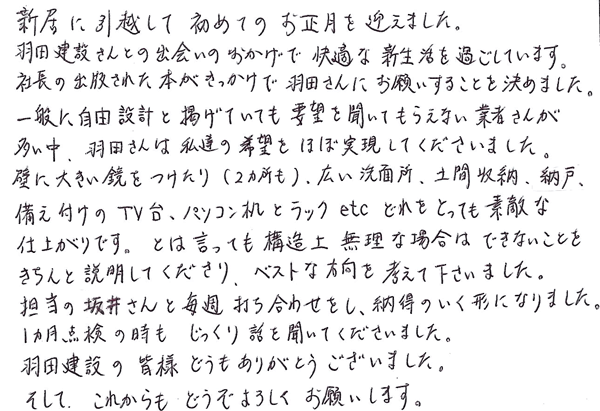 新居に引越して初めてのお正月を迎えました。
羽田建設さんとの出会いのおかげで快適な新生活を過ごしています。
社長の出版された本がきっかけで羽田さんにお願いすることを決めました。
一般に自由設計と掲げていても要望を聞いてもらえない業者さんが
多い中、羽田さんは私達の希望をほぼ実現してくださいました。
壁に大きい鏡をつけたり(2カ所も)、広い洗面所、土間収納、納戸、
備え付けのTV台、パソコン机とラックetcどれをとっても素敵な
仕上がりです。とは言っても構造上無理な場合はできないことを
きちんと説明してくださり、ベストな方向を考えて下さいました。
担当の坂井さんと毎週打ち合わせをし、納得のいく形になりました。
1カ月点検の時もじっくり話を聞いてくださいました。
羽田建設の皆様どうもありがとうございました。
そして、これからもどうぞよろしくお願いします。